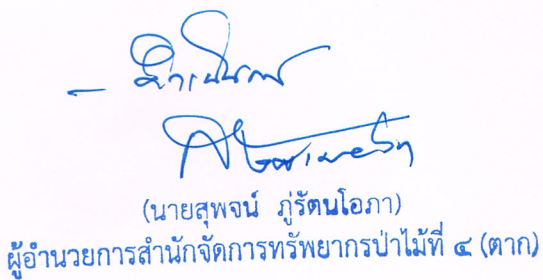 - ดำเนินการ
(นายสุพจน์ ภู่รัตนโอภา)
ผู้อำนวยการสำนักจัดการทรัพยากรป่าไม้ที่ ๔ (ตาก)